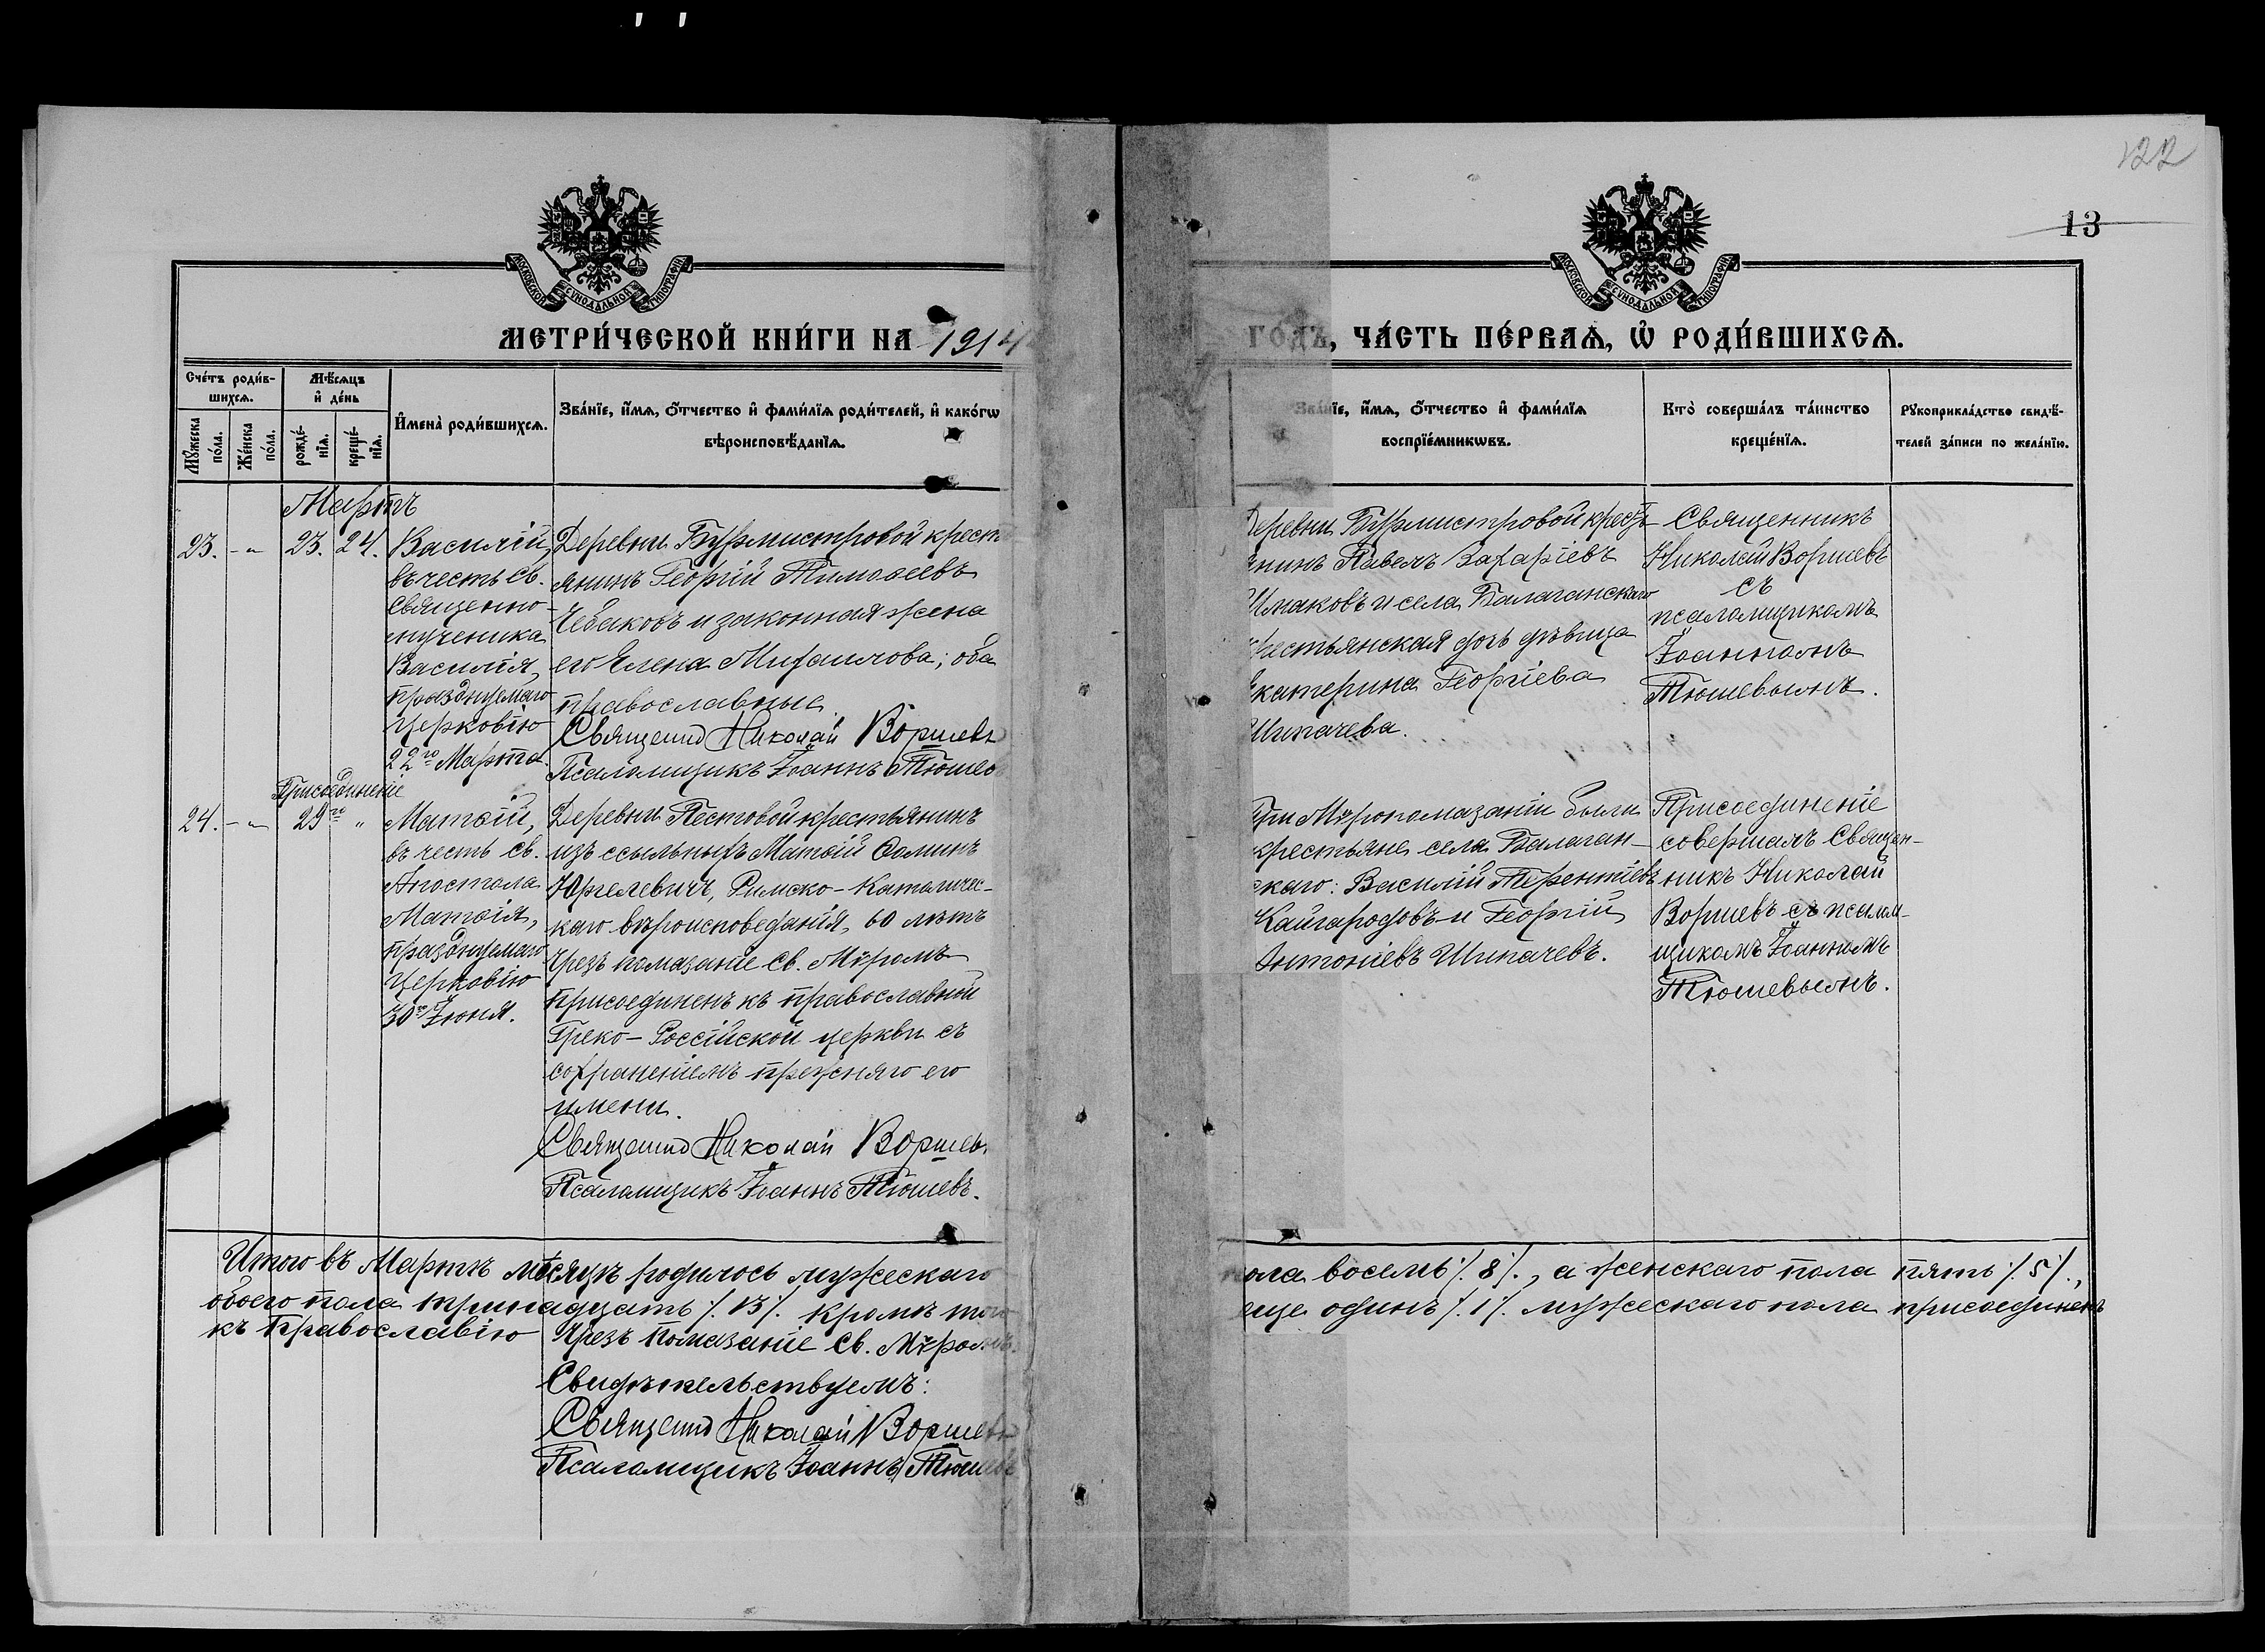 122
13
МОСКОВСКОЙ СѴНОДАЛЬНОЙ ТИПОГРАФІИ
МОСКОВСКОЙ СѴНОДАЛЬНОЙ ТИПОГРАФІИ
МЕТРИ́ЧЕСКОЙ КНИ́ГИ НА 1914
ГОДЪ, ЧА́СТЬ ПЕ́РВАѦ, Ѽ РОДИ́ВШИХСѦ.
Сче́тъ роди́в-
шихсѧ.
Мꙋ́жеска
по́ла.
Же́нска
по́ла.
Мѣ́сѧцъ
и҆ де́нь
рожде́-
нїѧ.
креще́-
нїѧ.
И҆мена̀ роди́вшихсѧ.
Зва́нїе, и҆́мѧ, ѻ҆́тчество и҆ фами́лїѧ роди́телей, и҆ како́гѡ
вѣроисповѣ́данїѧ.
Зва́нїе, и҆́мѧ, ѻ҆́тчество и҆ фами́лїѧ
воспрїе́мникѡвъ.
Кто̀ соверша́лъ та́инство
креще́нїѧ.
Рꙋкоприкла́дство свидѣ́-
телей за́писи по жела́нїю.
Мартъ
23. - " 23. 24.
Василій,
въ честь Св.
Священно-
мученика
Василія,
празднуемаго
Церковію
22го Марта.
Деревни Бурмистровой крест
янинъ Георгій Тимоѳеевъ
Чебаковъ и законная жена
его Елена Михаилова; оба
православные.
Священникъ Николай Воршевъ
Псаломщикъ Іоаннъ Тюшев
Деревни Бурмистровой кресть-
янинъ Павелъ Захаріевъ
и села Балаганскаго
крестьянская дочь дѣвица
Екатерина Георгіева
Шипачева.
Священникъ
Николай Воршевъ
съ
псаломщикомъ
Іоанномъ
Тюшевымъ.
Присоединеніе
24. - " 29го "
Матѳій,
въ честь Св.
Апостола
Матѳія,
празднуемаго
Церковію
30го Іюня.
Деревни Пестовой крестьянинъ
изъ ссыльныхъ Матѳій Ѳоминъ
Юргелевичъ, Римско-Католичес-
каго вѣроисповеданія, 60 лѣтъ
чрезъ помазаніе Св. Мѵромъ
присоединенъ къ православной
Греко-Россійской церкви съ
сохраненіемъ прежняго его
имени.
Священникъ Николай Воршевъ
Псаломщикъ Іоаннъ Тюшевъ.
При Мѵропомазаніи были
крестьяне села Балаган-
скаго: Василій Терентіевъ
Кайгародовъ и Георгій
Антоніевъ Шипачевъ.
Присоединеніе
совершалъ Священ-
никъ Николай
Воршевъ съ псалом-
щикомъ Іоанномъ
Тюшевымъ.
Итого въ Мартѣ мѣсяцѣ родилось мужескаго пола восемь /.8/., а женскаго пола пять /.5/.,
обоего пола тринадцать /.13/. кромѣ того еще одинъ /.1/. мужескаго пола присоединенъ
къ Православію чрезъ помазаніе Св. Мѵромъ.
Свидѣтельствуемъ:
Священникъ Николай Воршевъ
Псаломщикъ Іоаннъ Тюшевъ